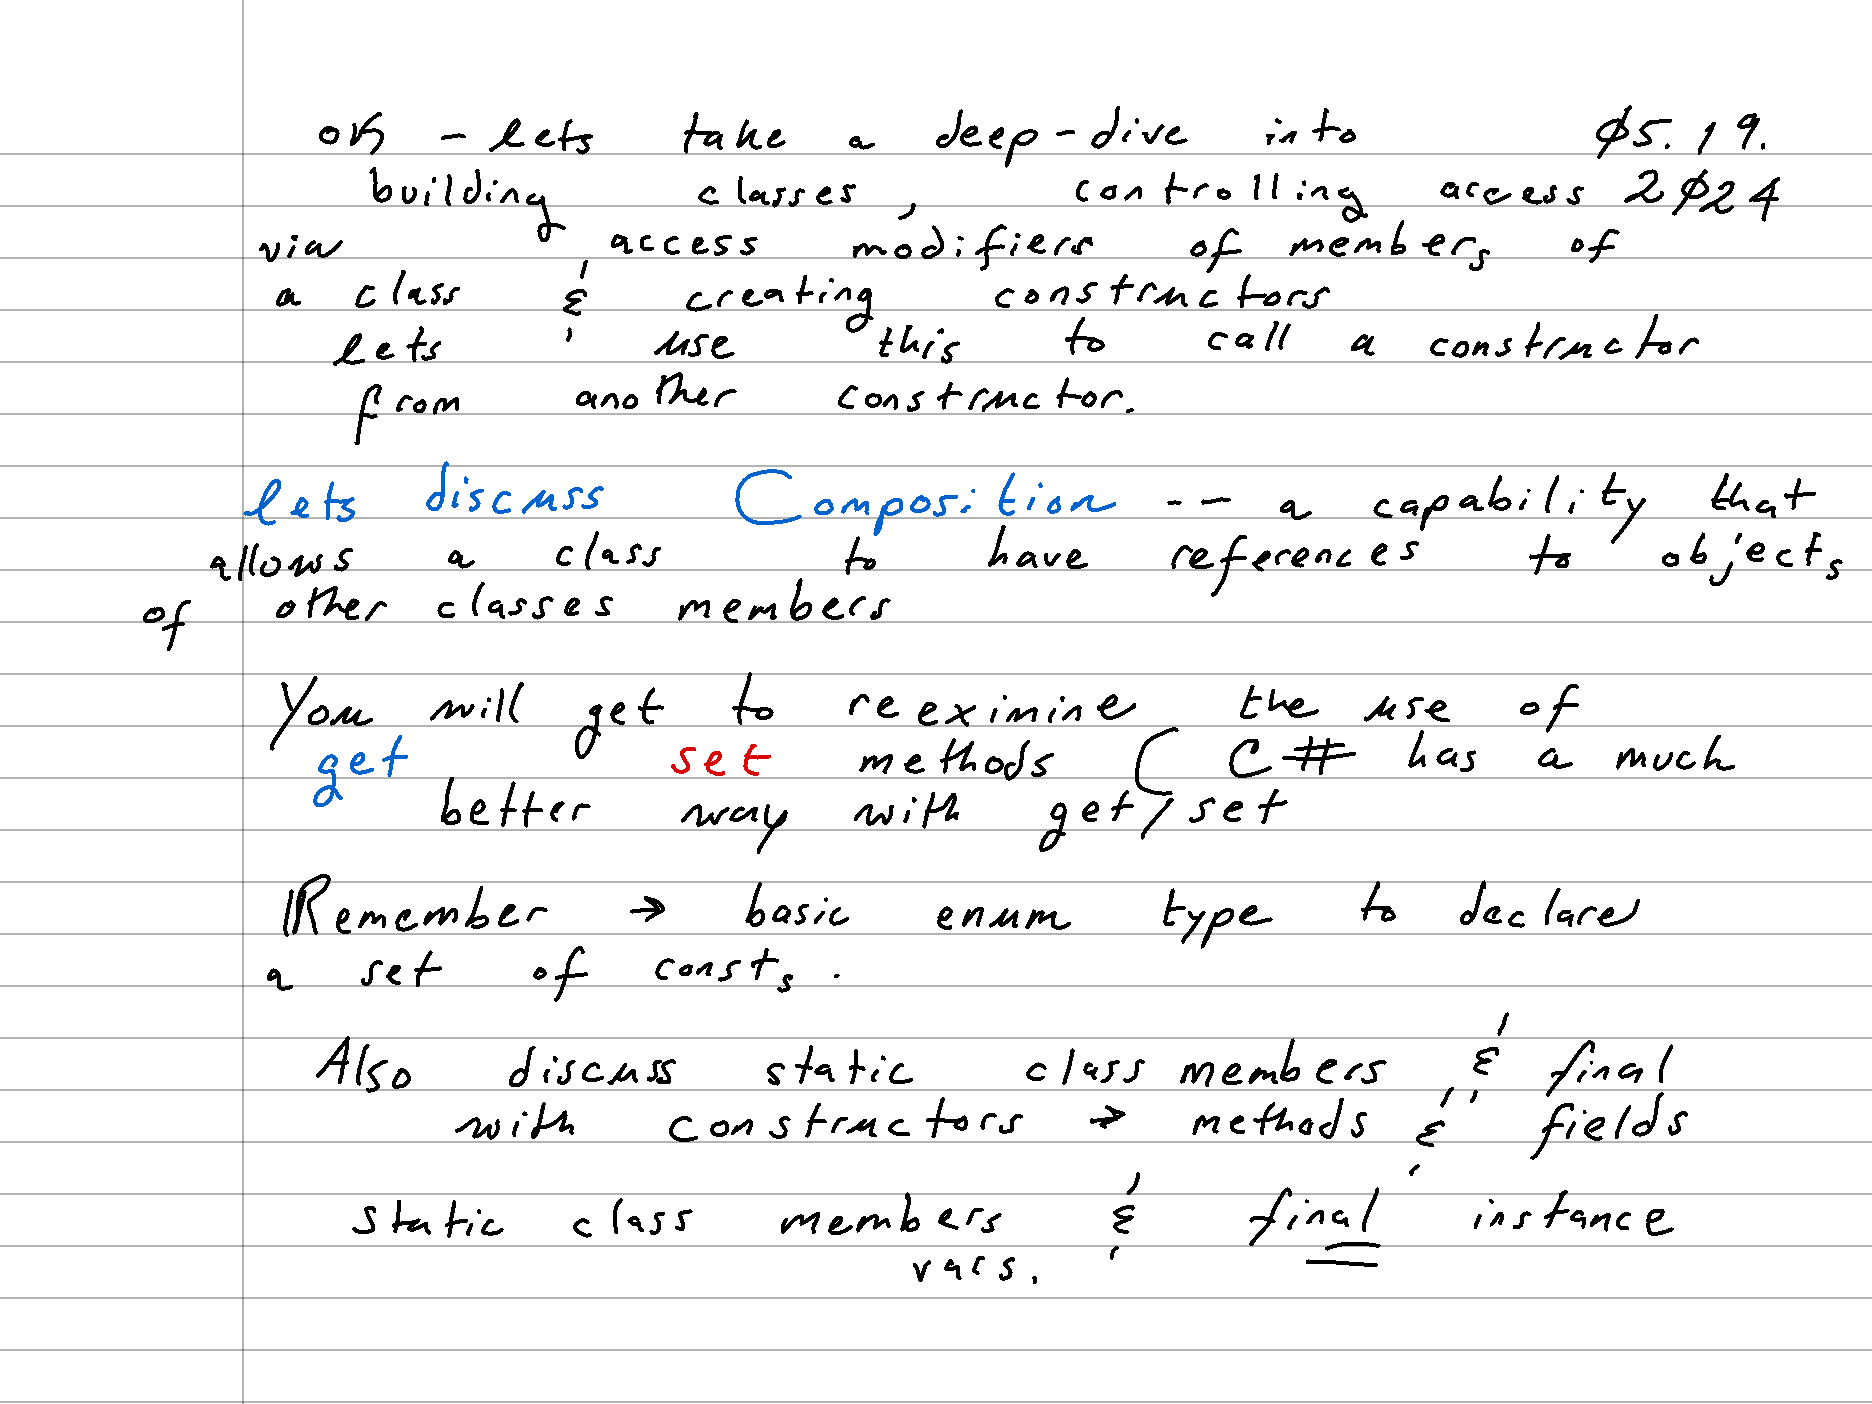 ok - lets take a deep-dive into ø5.19.
building classes, controlling access 2ø24
via access modifiers of members of
a class & creating constructors
lets use this to call a constructor
from another constructor.
lets discuss Composition -- a capability that
allows a class to have references to objects
of other classes members
You will get to reeximine the use of
get set methods ( C# has a much
better way with get/set
Remember → basic enum type to declare
a set of consts.
Also discuss static class members & final
with constructors → methods & fields
static class members & final instance
vars.